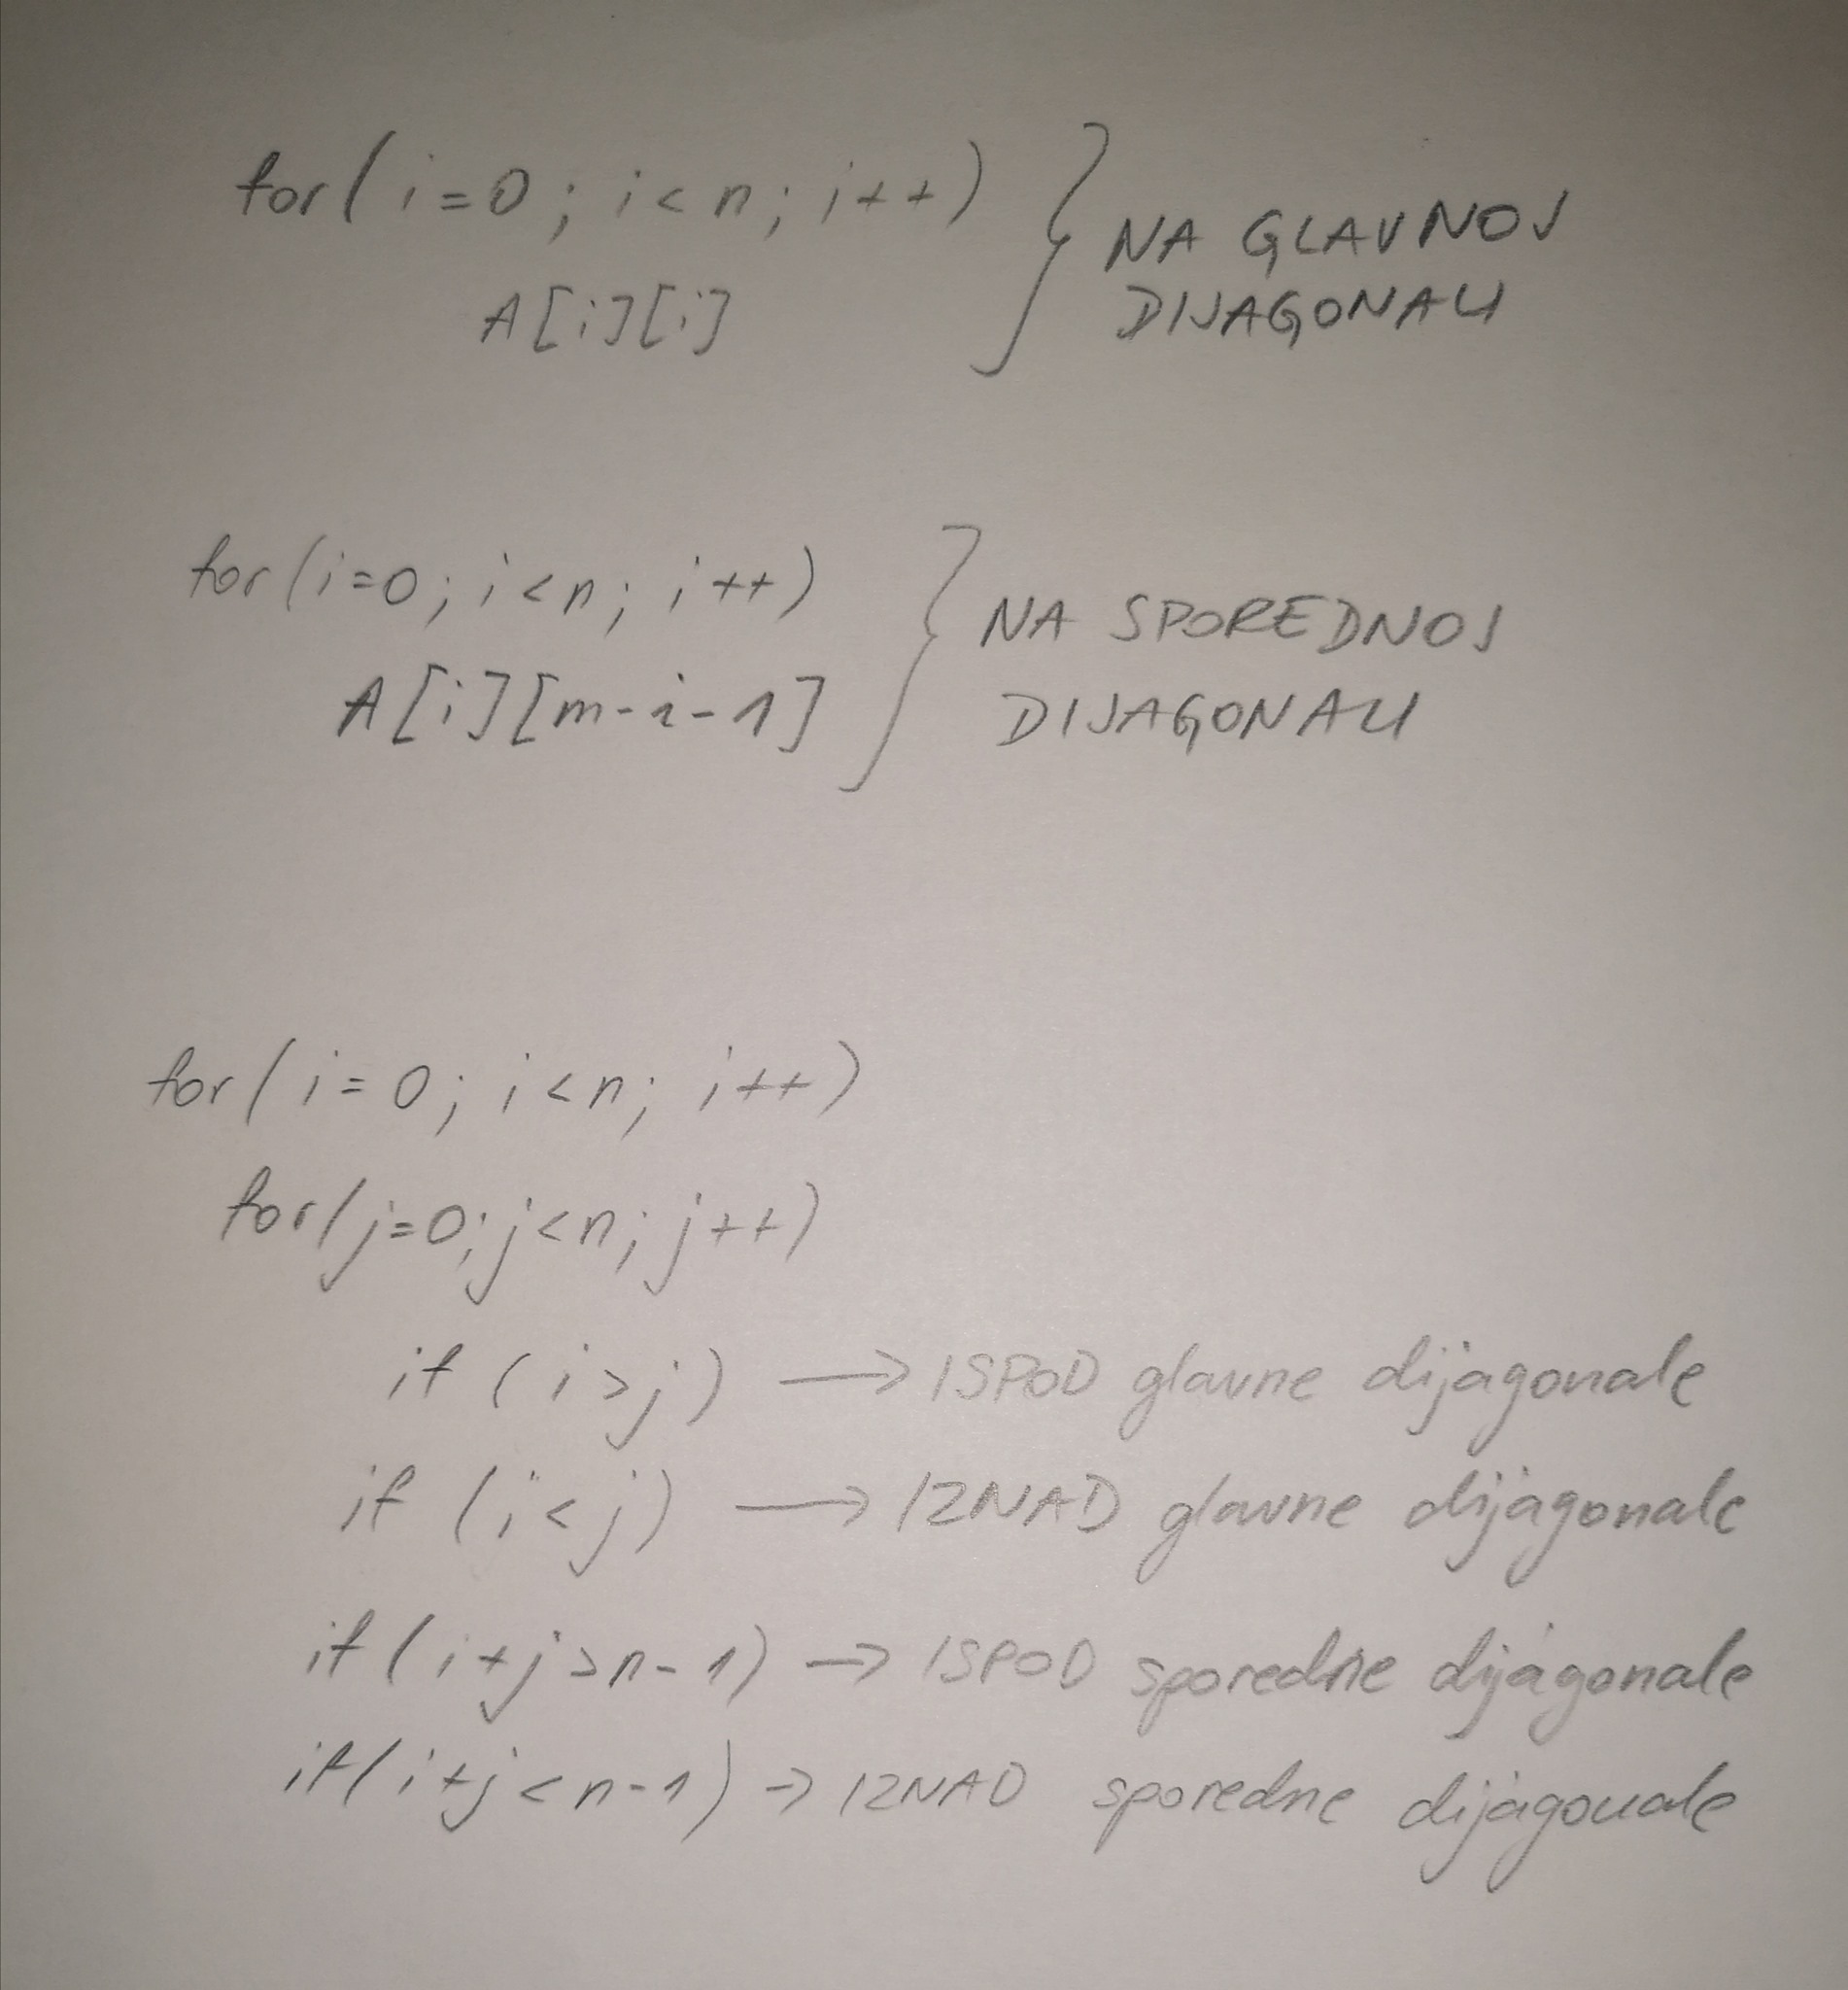 for(i=0; i<n; i++) NA GLAVNOJ
A[i][i] DIJAGONALI
for(i=0; i<n; i++) NA SPOREDNOJ
A[i][m-i-1] DIJAGONALI
for(i=0; i<n; i++)
for(j=0; j<n; j++)
if (i>j) → ISPOD glavne dijagonale
if (i<j) → IZNAD glavne dijagonale
if (i+j>n-1) → ISPOD sporedne dijagonale
if (i+j<n-1) → IZNAD sporedne dijagonale